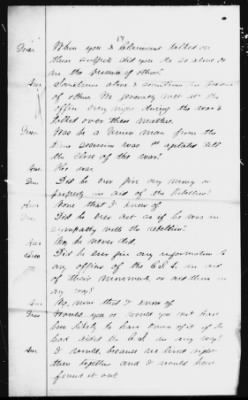 Ques When you & Claimant talked on
these subjects did you do so alone or
in the presence of others?
Ans Sometimes alone & sometimes in presence
of others. We generally met at the
office every night during the war &
talked over these matters.
Ques Was he a Union man from the
time Secession was 1st agitated till
the close of the war?
Ans He was
Ques Did he ever give any money or
property in aid of the Rebellion?
Ans None that I know of
Ques Did he ever act as if he was in
sympathy with the rebellion?
Ans No, he never did.
Ques Did he ever give any information to
any officer of the C.S.A. in aid
of their movements or aid them in
any way?
Ans No, none that I know of
Ques Would you or would you not have
been likely to have known of it if he
had aided the C.S.A. in any way?
Ans I would, because we lived right
there together and I would have
found it out